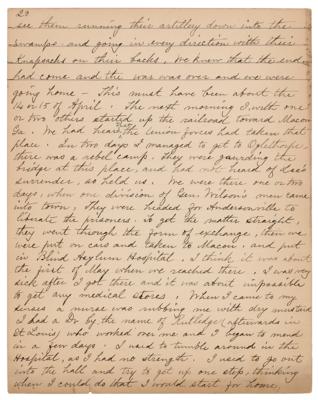 20
see them running their artilley down into the
swamps and going in every direction with their
knapsacks on their backs, We knew that the end
had come and the war was over and we were
going home - This must have been about the
14 or 15 of April. The next morning I, with one
or two others started up the railroad toward Macon
Ga. We had heard that the Union forces had taken that
place. In two days I managed to get to Oglethorpe,
there was a rebel camp. they were gaurding the
bridge at this place, and had not heard of Lee's
surrender, so held us. We were there one or two
days, when one division of Gen. Wilson's men came
into town, They were headed for Andersonville to
liberate the prisoners. To get the matter straight,
they went through the form of exchange, then we
were put on cars and taken to Macon. and put
in Blind Asylum Hospital. I think it was about
the first of May when we reached there, I was very
sick after I got there and it was about impossible
to get any medical stores. When I came to my
senses a nurse was rubbing me with dry mustard
I had a Dr by the name of Rutledge, afterwards in
St Louis, who worked over me and I began to mend
in a few days. I used to tumble around in the
Hospital, as I had no strength. I used to go out
into the hall and try to get up one step, thinking
when I could do that I would start for home,